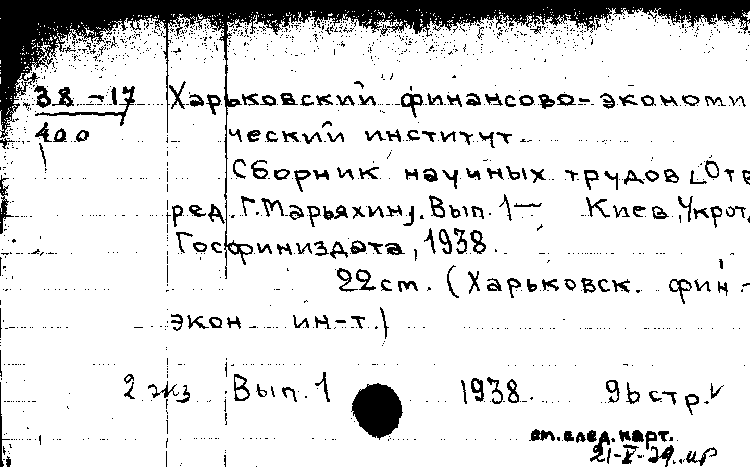 38-17 Харьковский финансово-экономи
400 ческий институт.
Сборник научных трудов [Отв
ред. Г. Марьяхин]. Вып. 1— Киев, Укрот.
Госфиниздата, 1938.
22см. (Харьковск. фин.-
экон. ин-т.)
2 экз Вып. 1 1938. 96 стр.
см. след. карт.